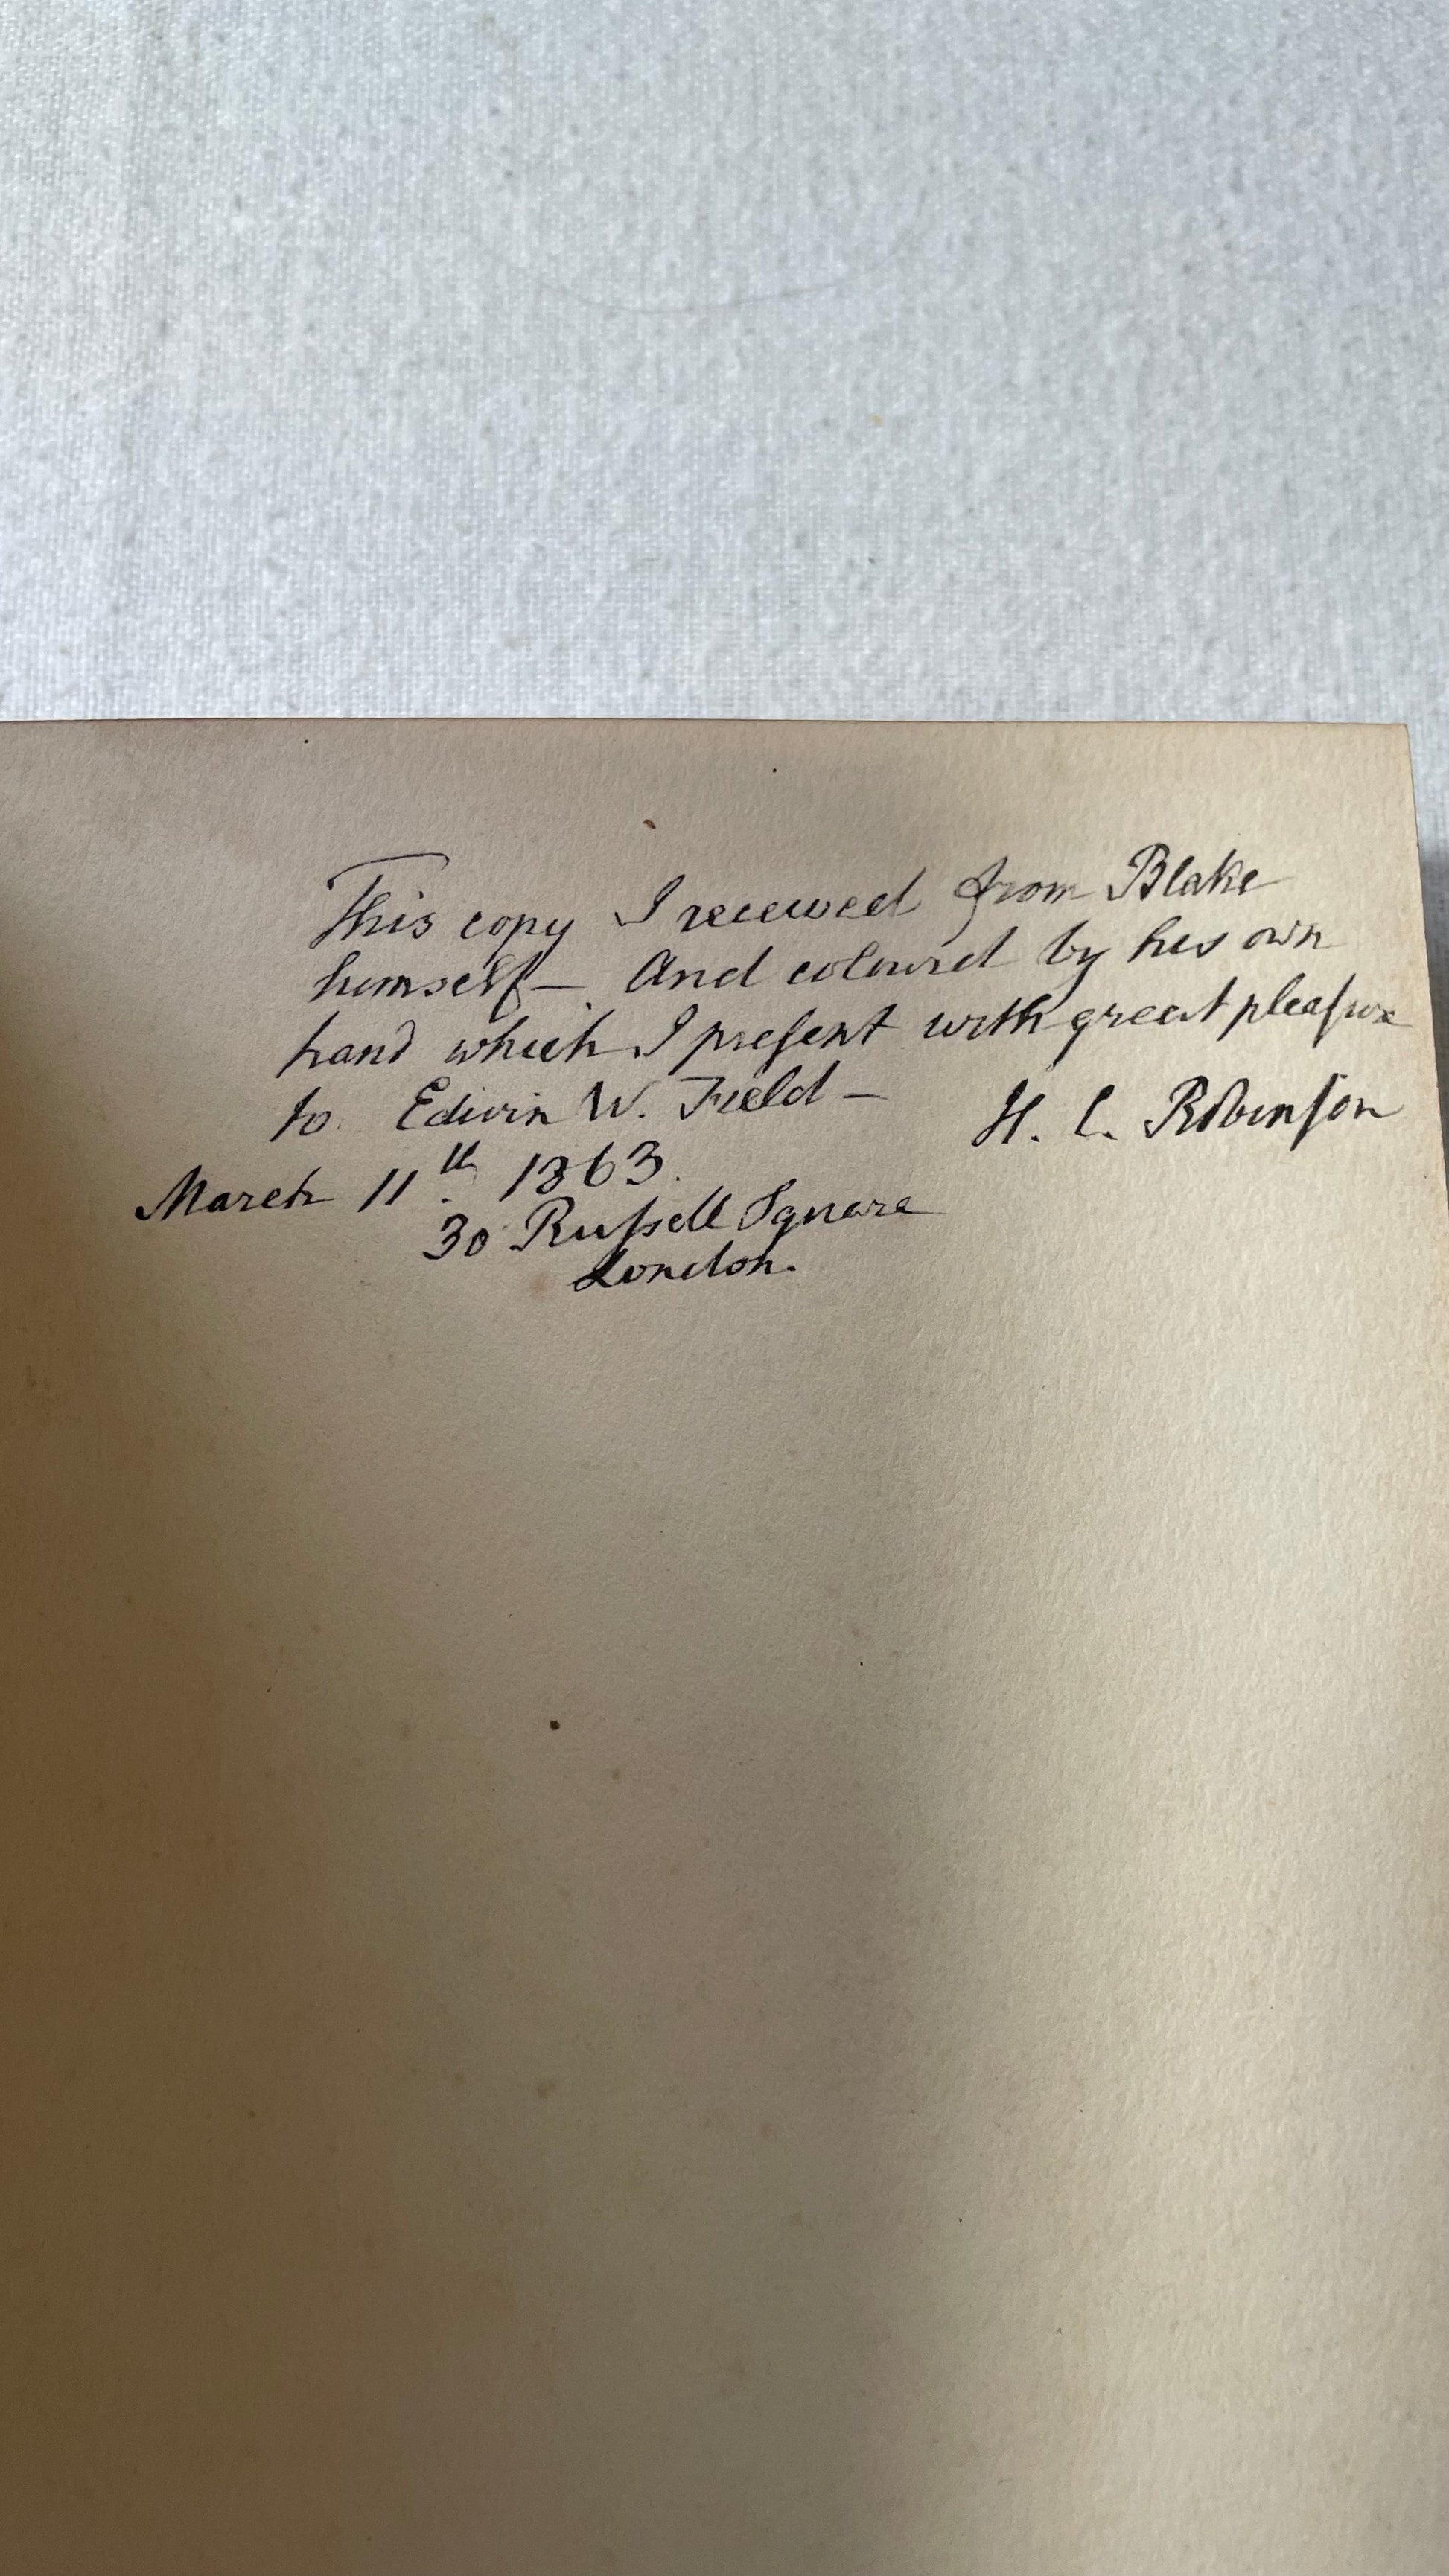 This copy I received from Blake
himself— And coloured by his own
hand which I preſent with great pleaſure
to Edwin W. Field —
H. C. Robinſon
March 11th. 1863.
30 Ruſsell Square
London.